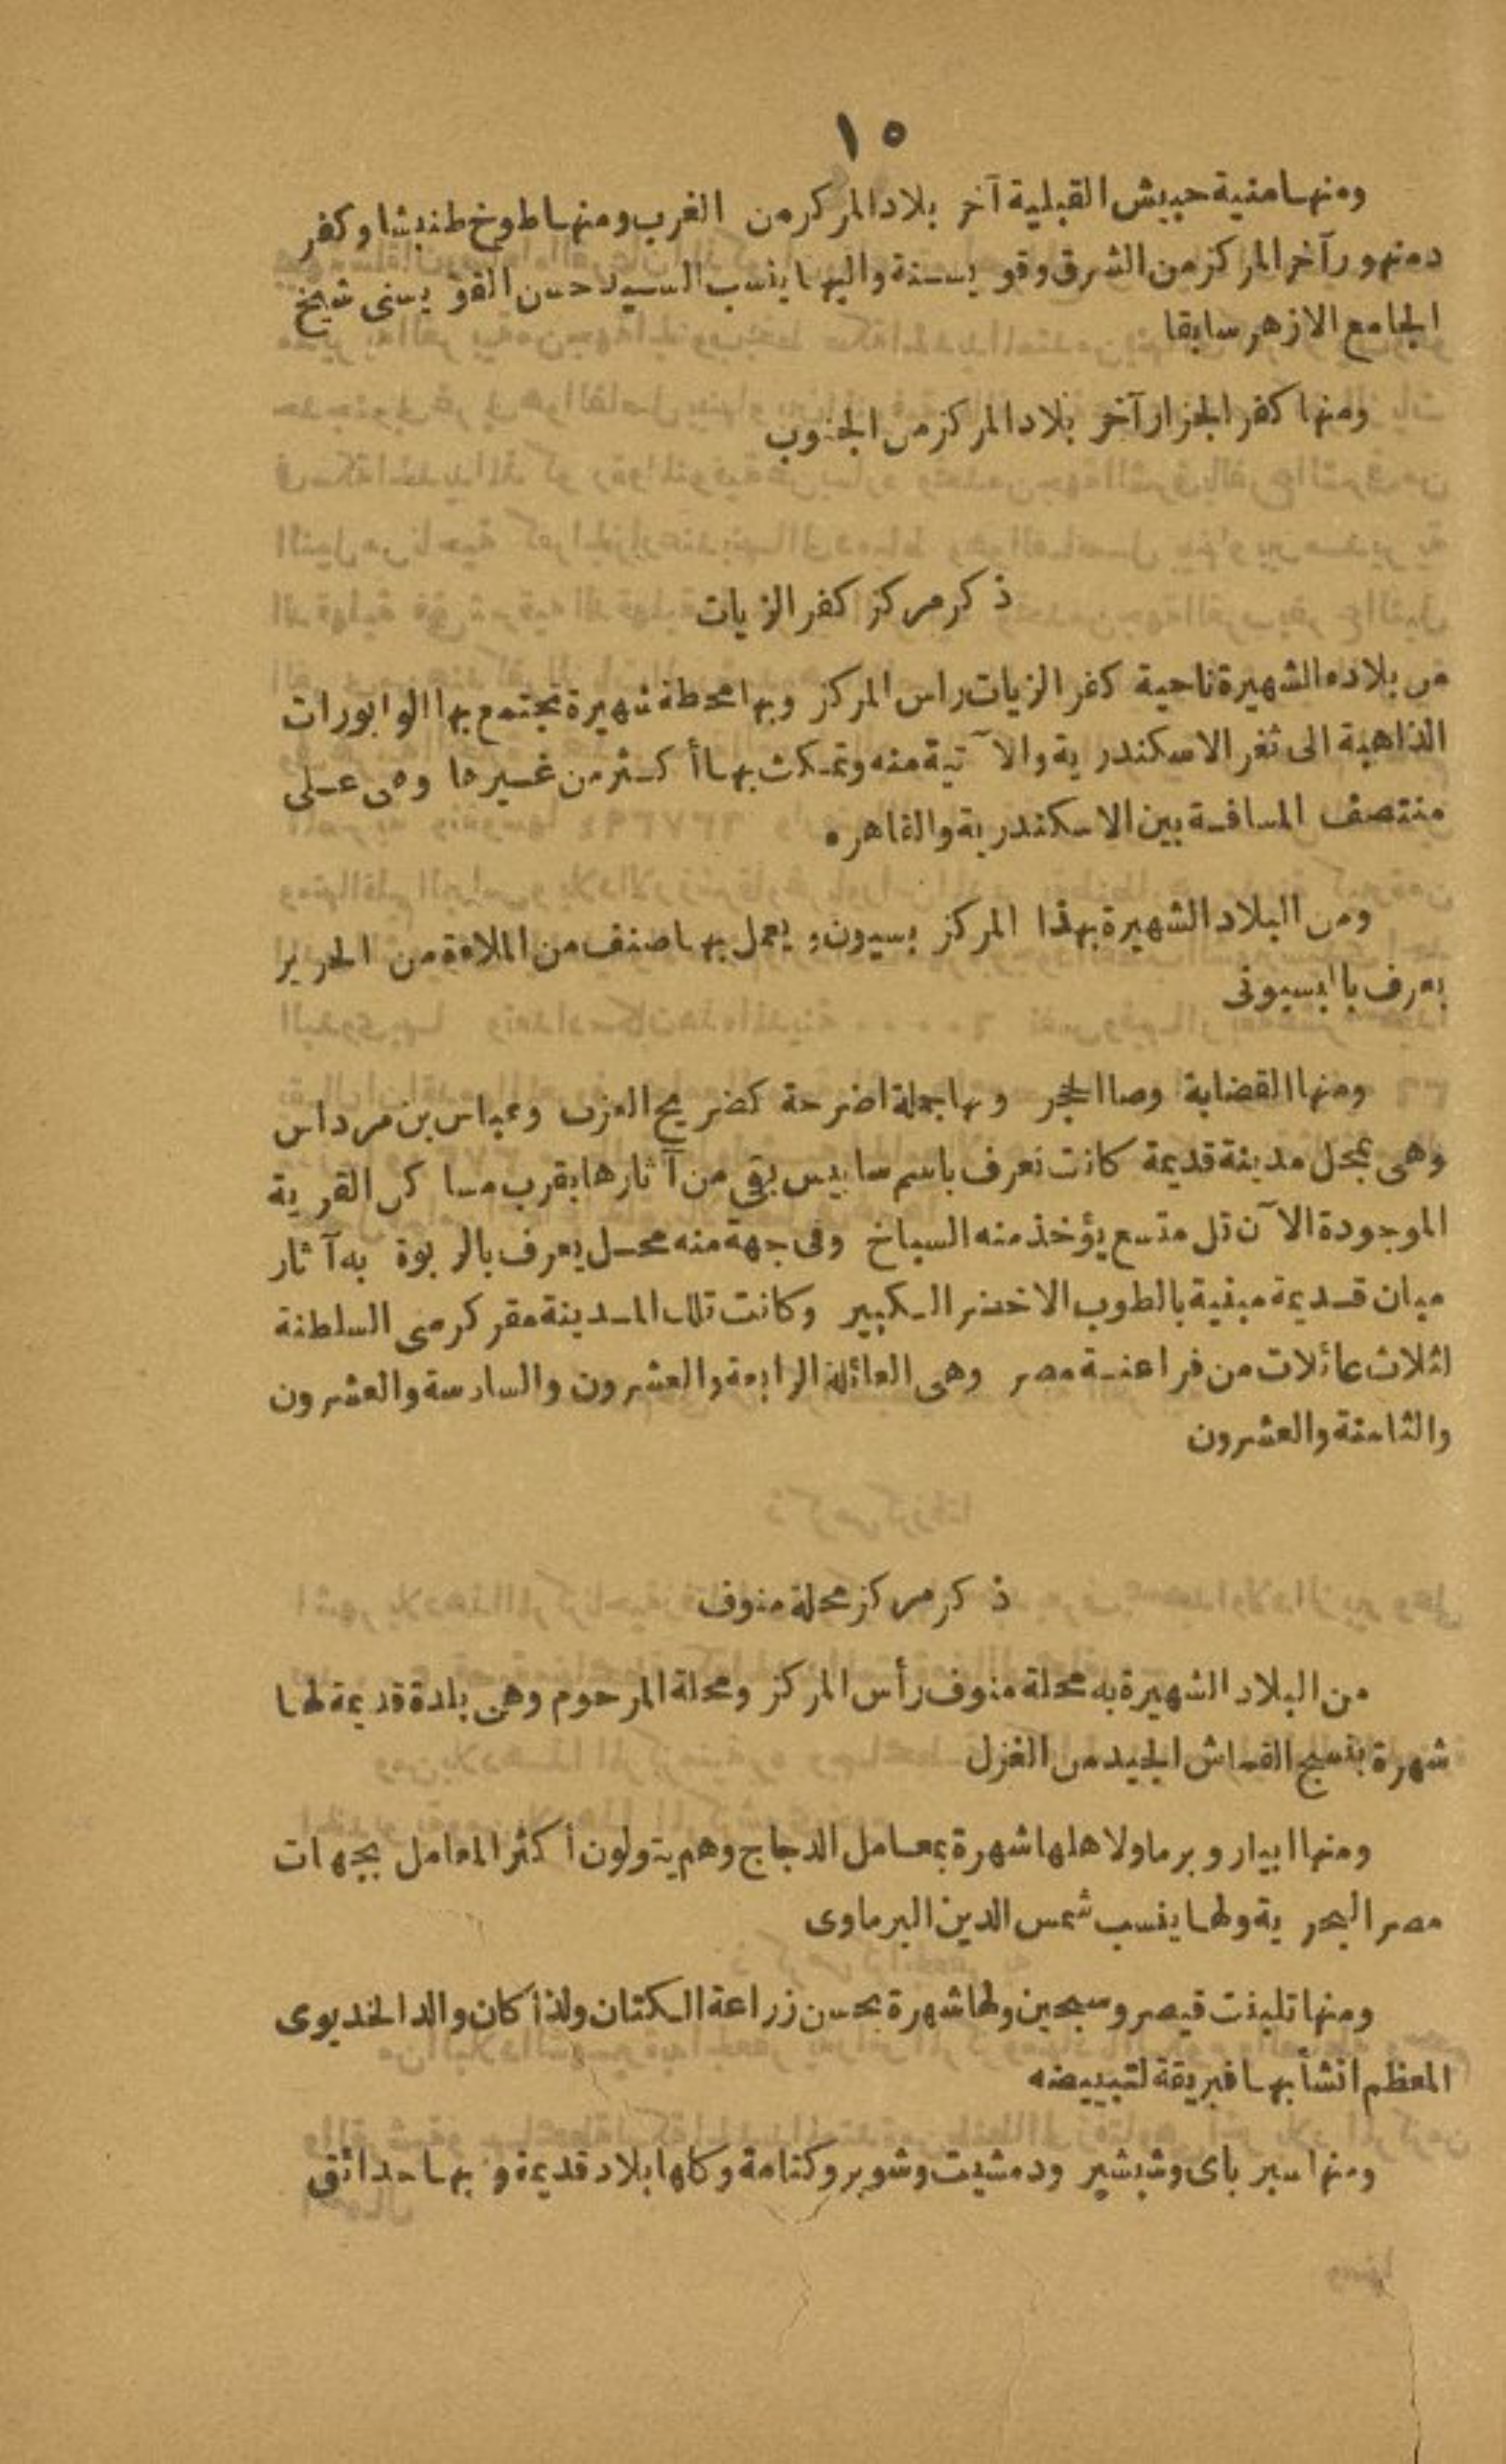 ١٥
ومنها منية حبيش القبلية آخر بلاد المركز من الغرب ومنها طوخ طنبشا وكفر
دمنهور آخر المركز من الشرق وقويسنة واليها ينسب السيد حسن القويسنى شيخ
الجامع الازهر سابقا
ومنها كفر الجزار آخر بلاد المركز من الجنوب
ذكر مركز كفر الزيات
من بلاده الشهيرة ناحية كفر الزيات راس المركز وبها محطة شهيرة تجتمع بها الوابورات
الذاهبة الى ثغر الاسكندرية والآتية منه وتمكث بها أكثر من غيرها وهى على
منتصف المسافة بين الاسكندرية والقاهره
ومن البلاد الشهيرة بهذا المركز بسيون ويعمل بها صنف من الملاءة من الحرير
يعرف بالبسيونى
ومنها القضابة وصا الحجر وبها جملة اضرحة كضريح العزب وعباس بن مرداس
وهى بمحل مدينة قديمة كانت تعرف باسم سايس بقى من آثارها بقرب مساكن القرية
الموجودة الآن تل متسع يؤخذ منه السباخ وفى جهة منه محل يعرف بالربوة به آثار
مبان قديمة مبنية بالطوب الاخضر الكبير وكانت تلك المدينة مقر كرسى السلطنة
لثلاث عائلات من فراعنة مصر وهى العائلة الرابعة والعشرون والسادسة والعشرون
والثامنة والعشرون
ذكر مركز محلة منوف
من البلاد الشهيرة به محلة منوف رأس المركز ومحلة المرحوم وهى بلدة قديمة لها
شهرة بنسج القماش الجيد من الغزل
ومنها ابيار وبرما ولاهلها شهرة بمعامل الدجاج وهم يتولون أكثر المعامل بجهات
مصر البحرية ولها ينسب شمس الدين البرماوى
ومنها تلبنت قيصر وسبحين ولها شهرة بحسن زراعة الكتان ولذا كان والد الخديوى
المعظم انشأ بها فبريقة لتبييضه
ومنها سبرباى وشبشير ودمشيت وشوبر وكتامة وكلها بلاد قديمة وبها حدائق